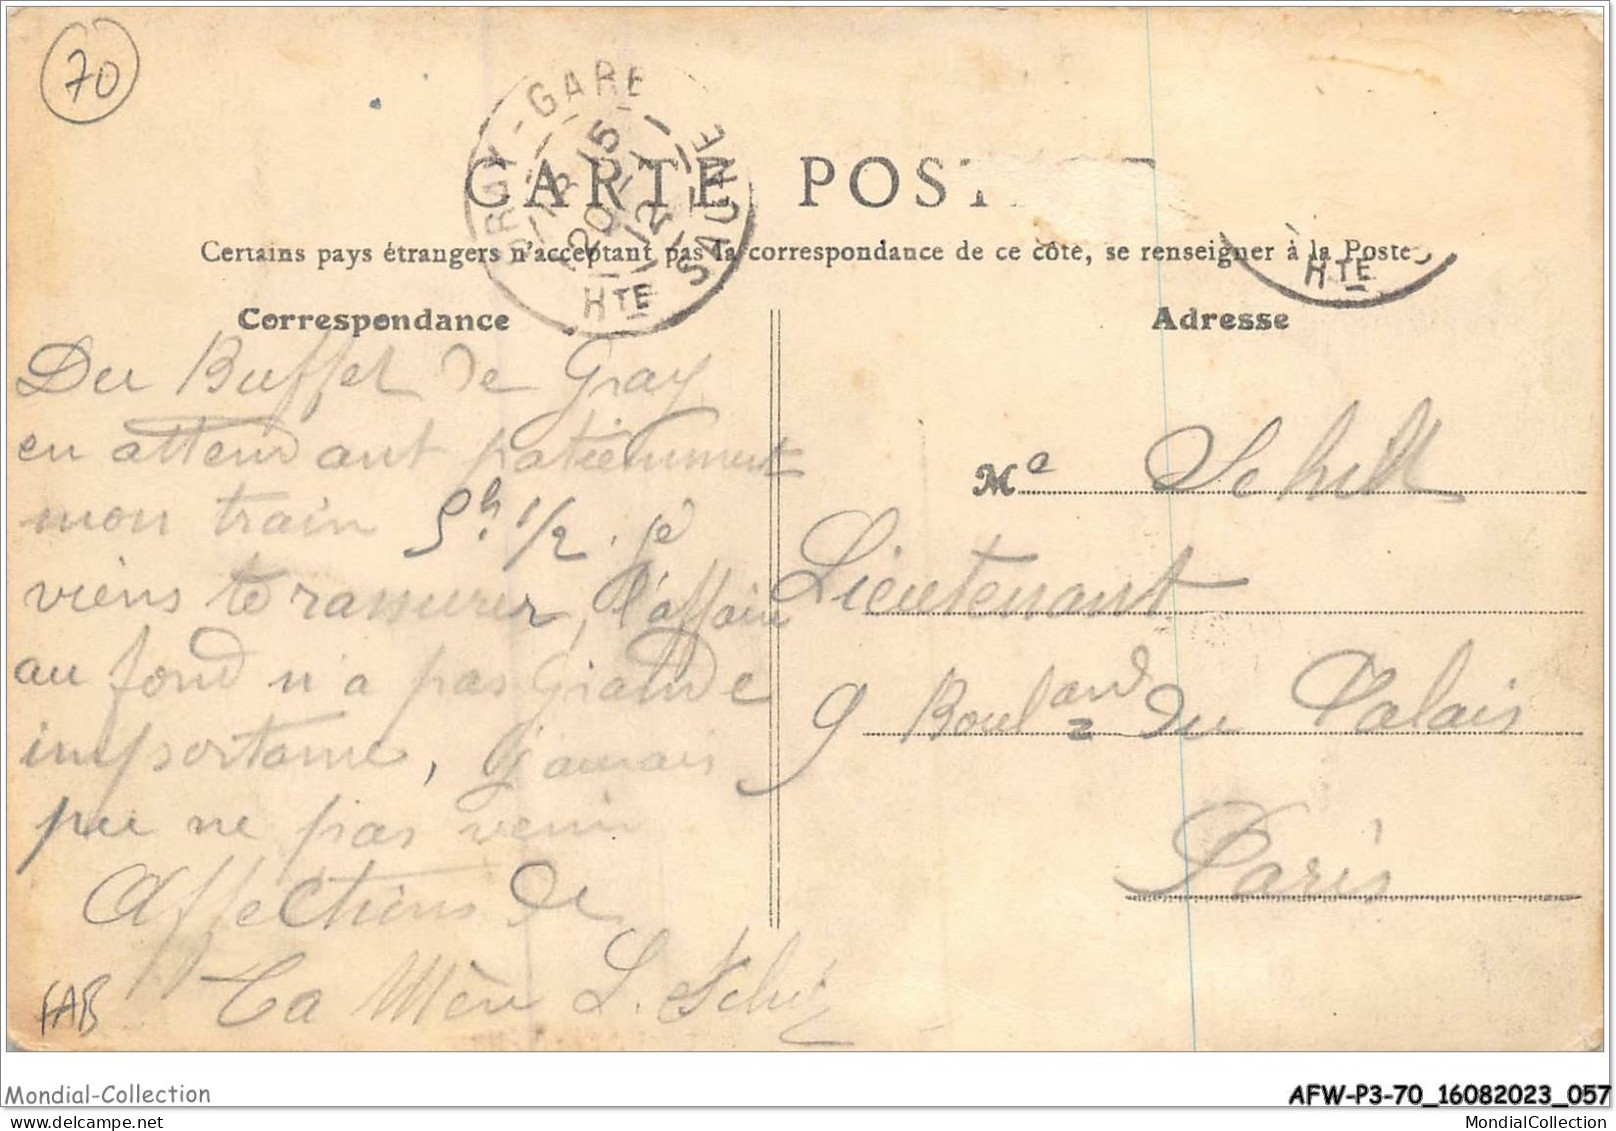 70
GRAY-GARE
13 15
20 -1
12
HTE SAONE
CARTE POST
Certains pays étrangers n'acceptant pas la correspondance de ce côté, se renseigner à la Poste
HTE
Correspondance
Adresse
Du Buffet de Gray
en attendant patiemment
mon train 5h. 1/2. je
viens te rassurer, l'affaire
au fond n'a pas grande
importance, j'aurais
pu ne pas venir
Affections de
Ta Mère L. Schill
Me Schill
Lieutenant
9 Boulard du Palais
Paris
FAB
Mondial-Collection
AFW-P3-70_16082023_057
MondialCollection